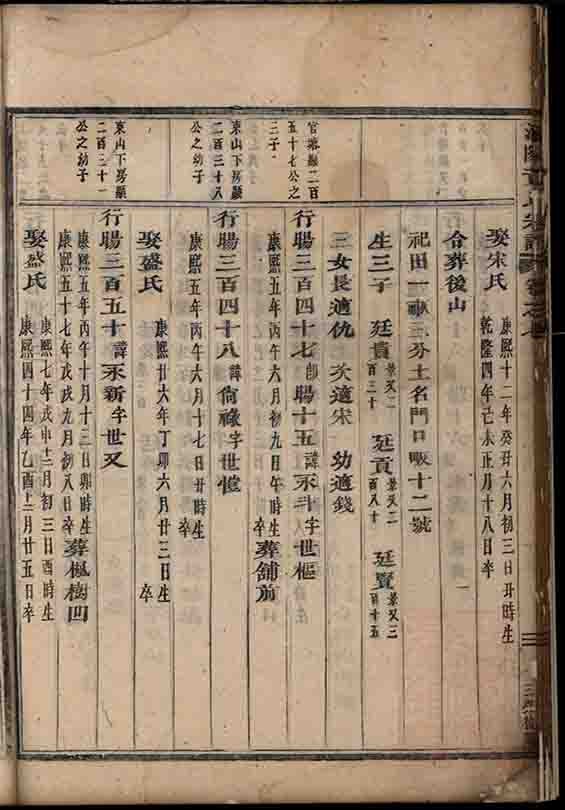 娶宋氏 康熙十二年癸丑六月初三日丑時生
乾隆四年己未正月十八日卒
合葬後山
祀田一畝三分土名門口畈十二號
生三子 廷貴 景又二百三十 廷貢 景又二百八十 廷覽 景又三百十五
三女長適仇 次適宋 幼適錢
二百
五十七公之
三子
行暘三百四十七即暘十五諱永斗字世樞
康熙五年丙午六月初九日午時生
卒
葬舖前
東山下房顯
二百三十八
公之幼子
行暘三百四十八諱尚祿字世愷
康熙五年丙午六月十七日丑時生
卒
娶盛氏 康熙廿六年丁卯六月廿三日生
卒
東山下房顯
二百三十一
公之幼子
行暘三百五十諱永新字世又
康熙五年丙午十月十三日卯時生
康熙五十七年戊戌九月初八日卒
葬楓樹凹
娶盛氏 康熙七年戊申十二月初三日酉時生
康熙四十四年乙酉十二月廿五日卒